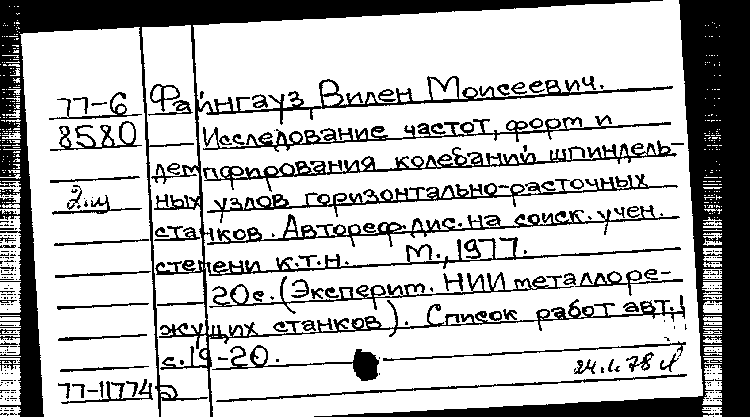 77-6 Файнгауз, Вилен Моисеевич.
8580 Исследование частот, форм и
демпфирования колебаний шпиндель-
ных узлов горизонтально-расточных
станков. Автореф. дис. на соиск. учен.
степени к.т.н. М., 1977.
20с. (Эксперит. НИИ металлоре-
жущих станков). Список работ авт.:
с. 19-20.
77-11774
24.1.78